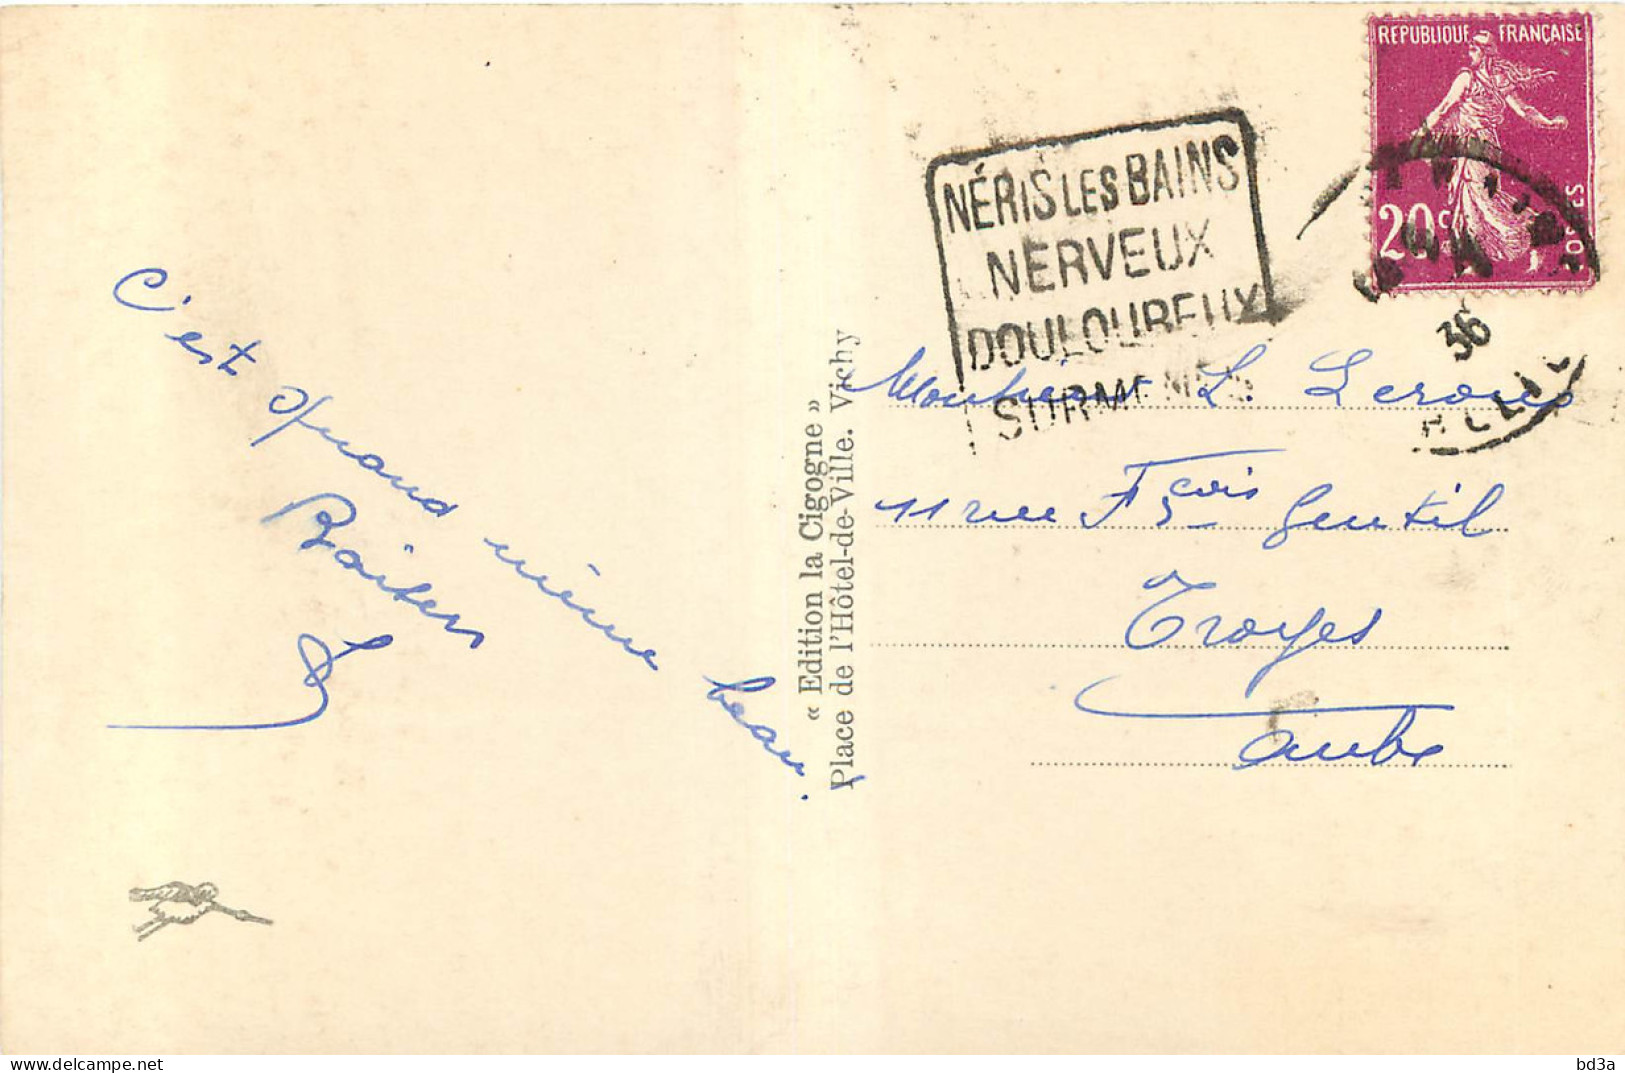 C'est quand même beau.
Baisers
« Edition la Cigogne »
Place de l'Hôtel-de-Ville. Vichy
REPUBLIQUE FRANÇAISE
20c
POSTES
NÉRIS LES BAINS
NERVEUX
DOULOUREUX
SURMENES
36
ALLIE
Monsieur L. Leroux
11 rue Fçois Gentil
Troyes
Aube
bd3a